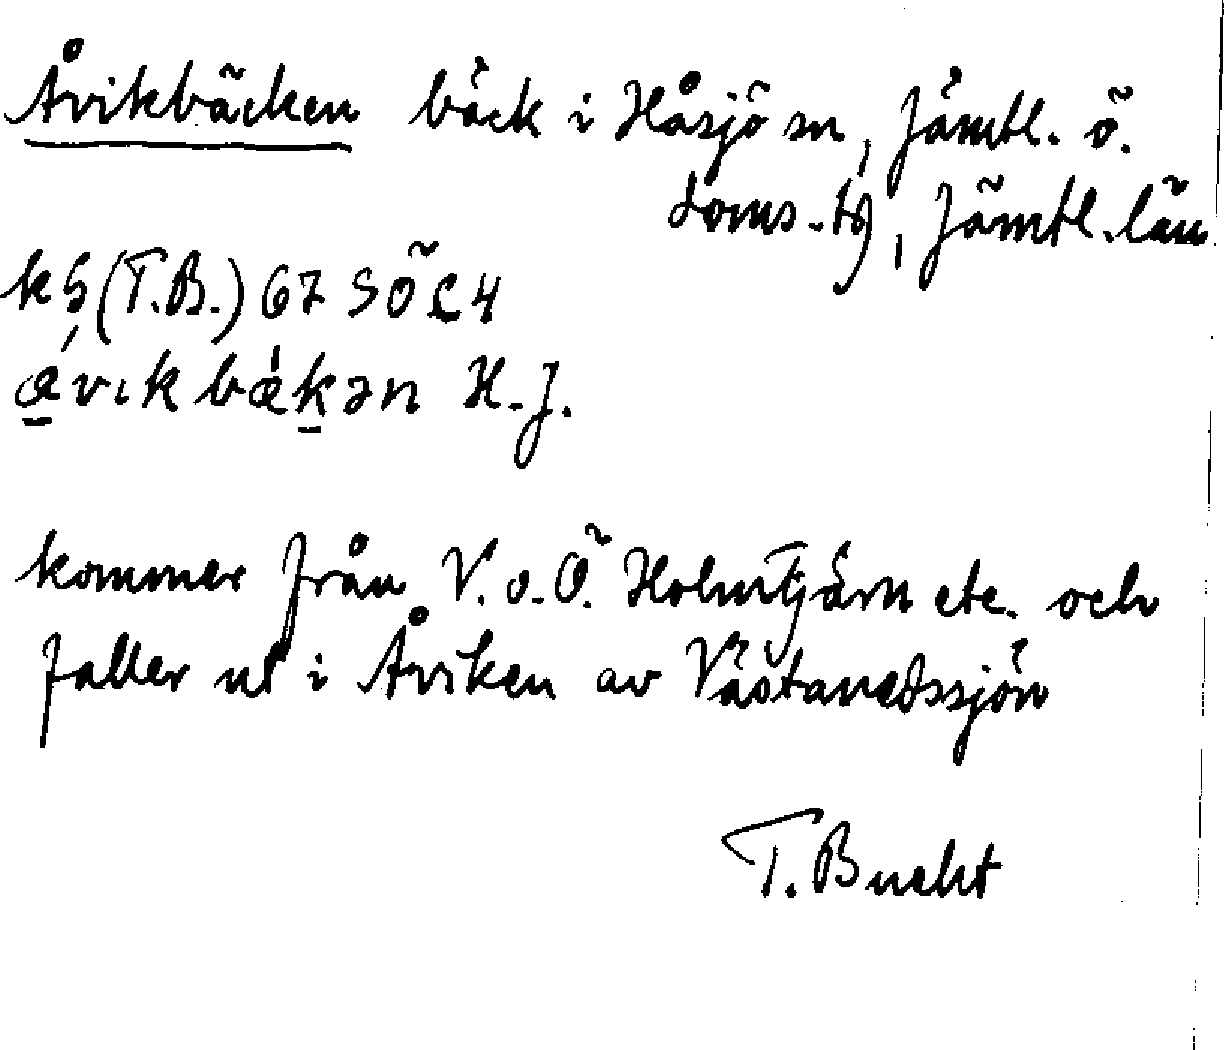 Åvikbäcken bäck i Håsjö sn, Jämtl. ö.
doms.-tg, Jämtl. län
k§ (T.B.) 67 SÖ c 4
ǽvıkbǽkən H.J.
kommer från V. o. Ö. Holmtjärn etc. och
faller ut i Åviken av Västanedssjön
T. Bucht